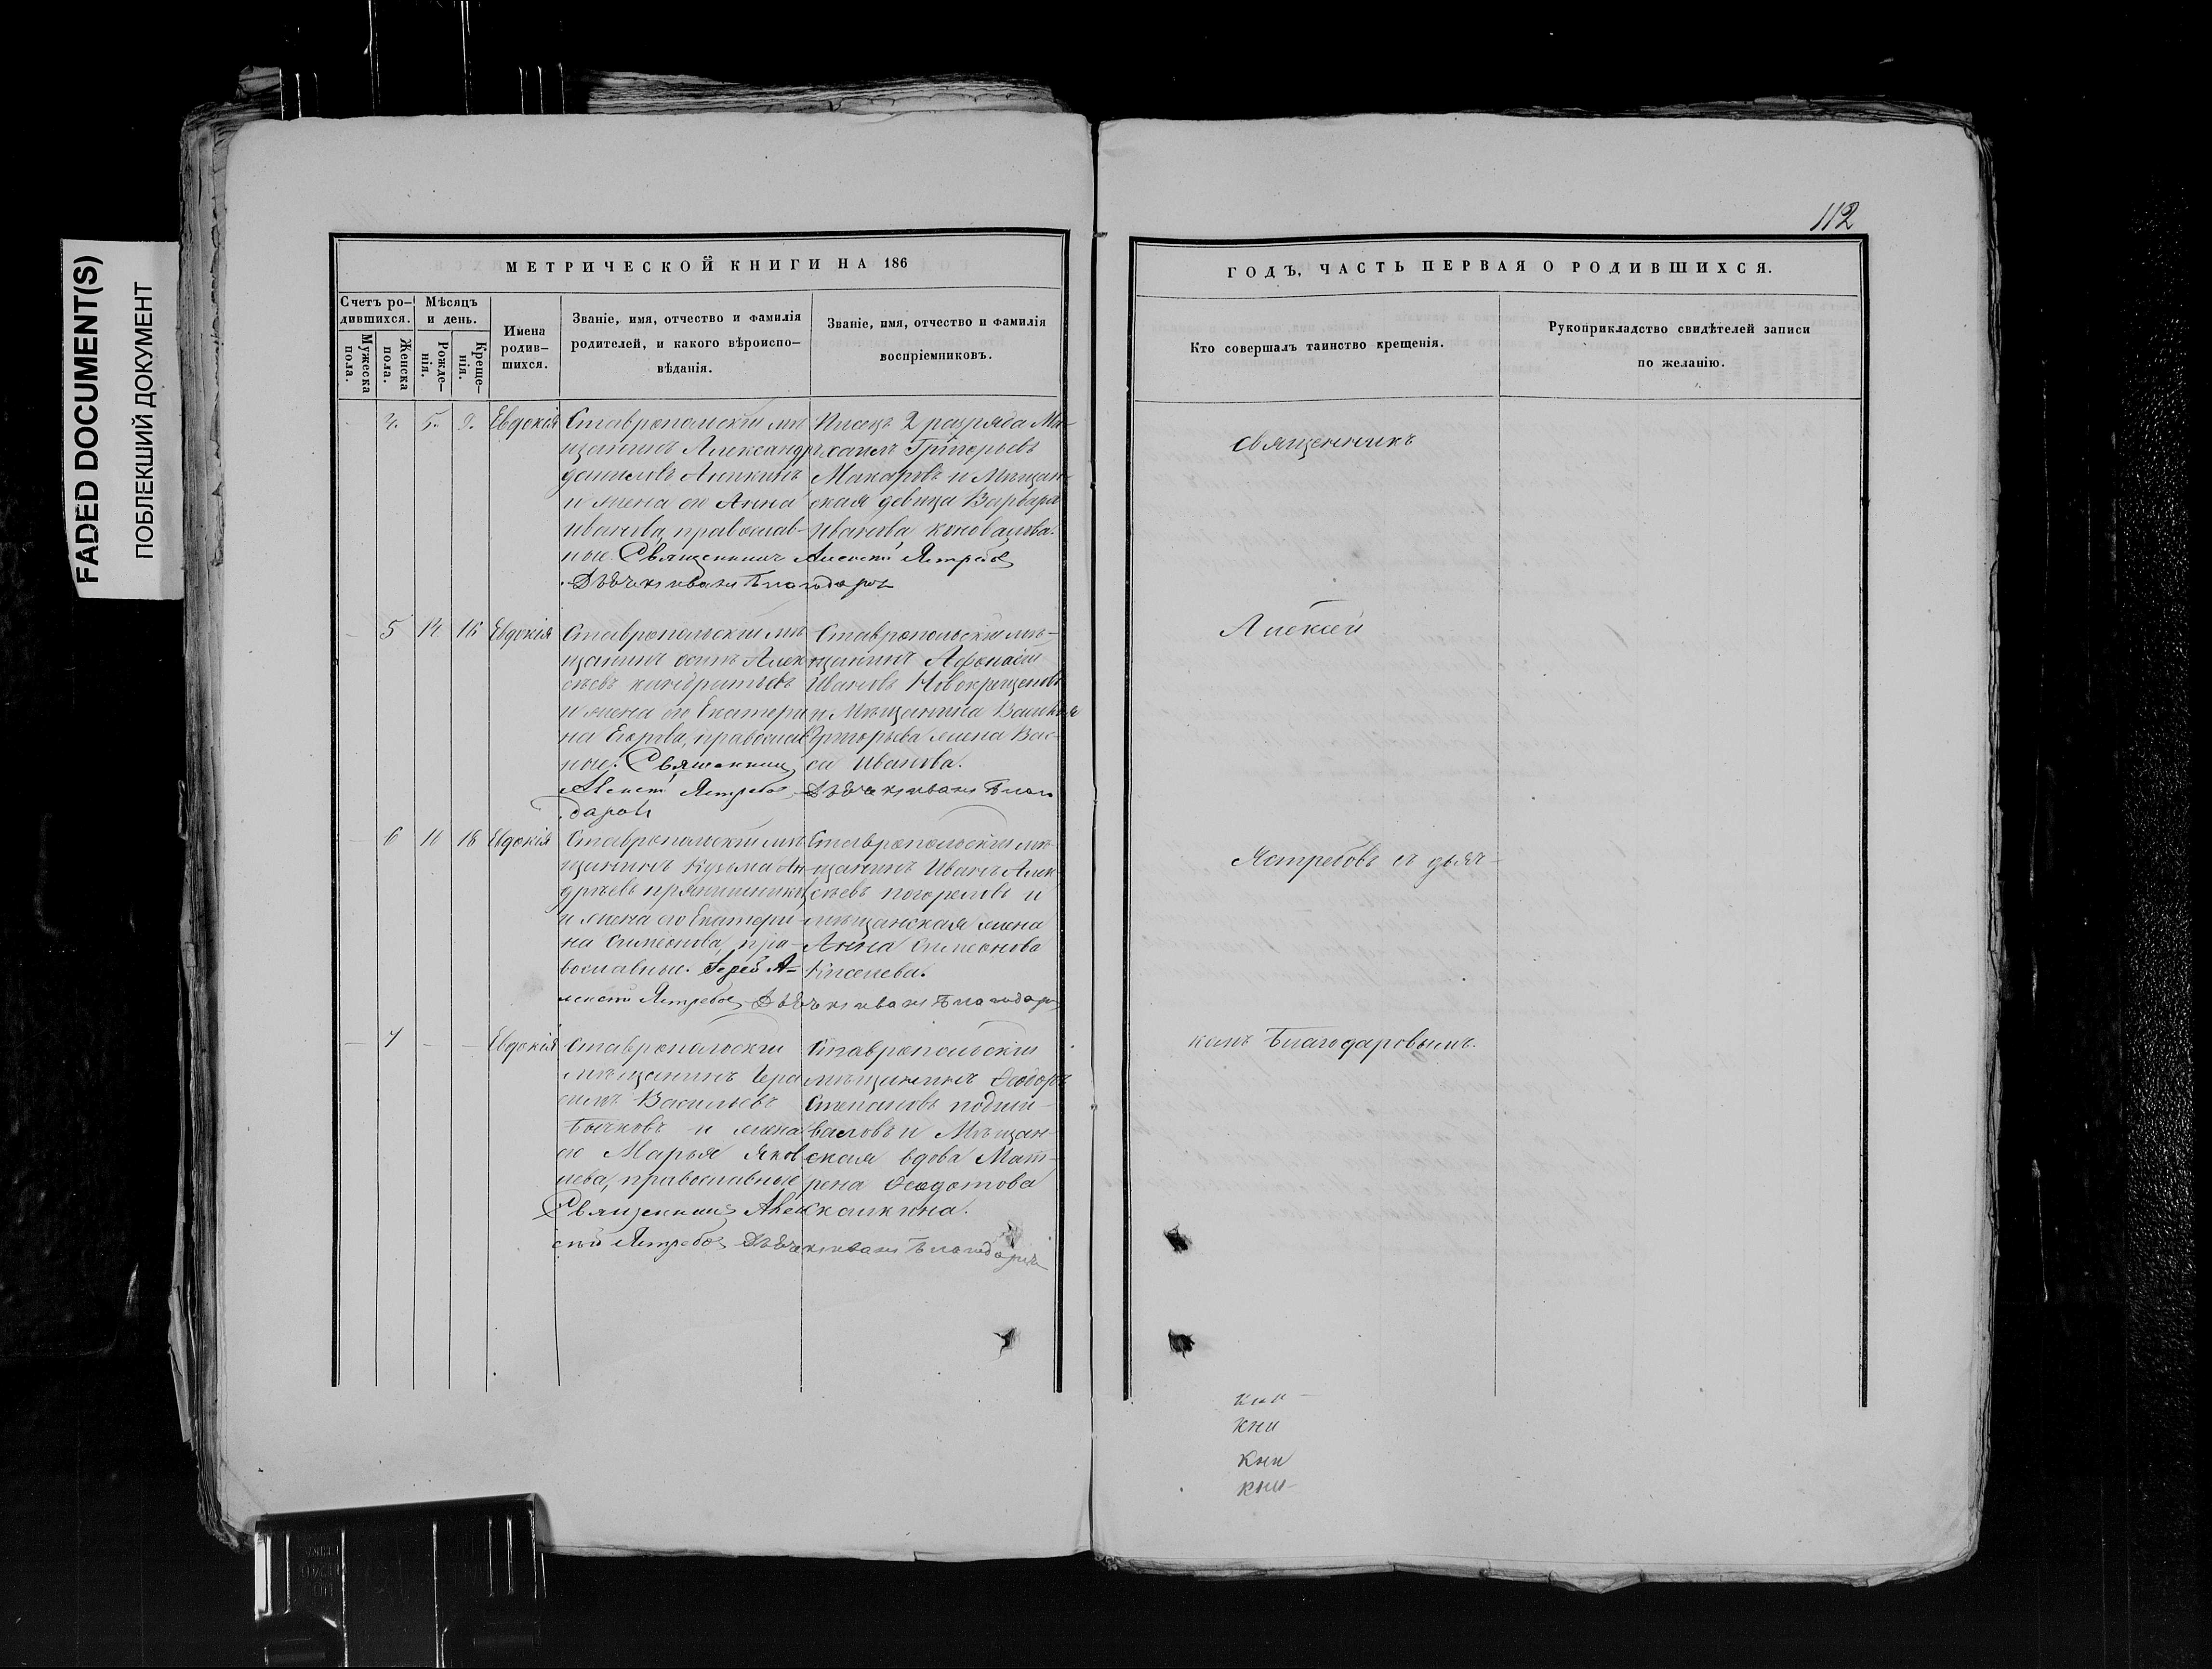 FADED DOCUMENT(S)
ПОБЛЕКШИЙ ДОКУМЕНТ
МЕТРИЧЕСКОЙ КНИГИ НА 186
Счетъ родившихся.
Мужеска пола.
Женска пола.
Мѣсяцъ и день.
Рожде-нія.
Креще-нія.
Имена родив-шихся.
Званіе, имя, отчество и фамилія
родителей, и какого вѣроиспо-
вѣданія.
Званіе, имя, отчество и фамилія
воспріемниковъ.
4. 5. 9. Евдокія
Ставропольскій мѣ-
щанинъ Александръ
Даниловъ Аникинъ
и жена его Анна
Иванова, православ-
ные. Священникъ Алексѣй Ястребовъ
Дьячекъ Иванъ Благодаровъ
Писецъ 2 разряда Ми-
хаилъ Григорьевъ
Макаровъ и Мѣщан-
ская девица Варвара
Иванова Коновалова.
5 14 16 Евдокія
Ставропольскій мѣ-
щанинъ Алек
сѣевъ Кандратьевъ
и жена его Екатери
на Егорова, православ
ные. Священникъ
Алексѣй Ястребовъ Дьячекъ Иванъ Благо
даровъ
Ставропольскій мѣ-
щанинъ Афонасій
Ивановъ Новокрещеновъ
и Мѣщанина Василья
Григорьева жена Вас-
са Иванова.
6 16 18 Евдокія
Ставропольскій мѣ
щанинъ Кузьма Ан-
дрѣевъ Прянишниковъ
и жена его Екатери-
на Симеонова, пра-
вославные. Іерей А-
лексѣй Ястребовъ Дьячекъ Иванъ Благодаровъ
Ставропольскій мѣ-
щанинъ Иванъ Алек
сѣевъ Погореловъ и
мѣщанская жена
Анна Симеонова
Киселева.
7 - - Евдокія
Ставропольскій
мѣщанинъ Гера
симъ Васильевъ
Бычковъ и жена
его Марья Яков
лева, православные
Священникъ Алек
сѣй Ястребовъ Дьячекъ Иванъ Благодаровъ
Ставропольскій
мѣщанинъ Ѳеодоръ
Степановъ Подши-
валовъ и Мѣщан-
ская вдова Мат-
рена Ѳеодотова
Скалкина.
112
ГОДЪ, ЧАСТЬ ПЕРВАЯ О РОДИВШИХСЯ.
Кто совершалъ таинство крещенія.
Рукоприкладство свидѣтелей записи
по желанію.
Священникъ
Алексѣй
Ястребовъ съ дьяч-
комъ Благодаровымъ.
кни
кни
кни